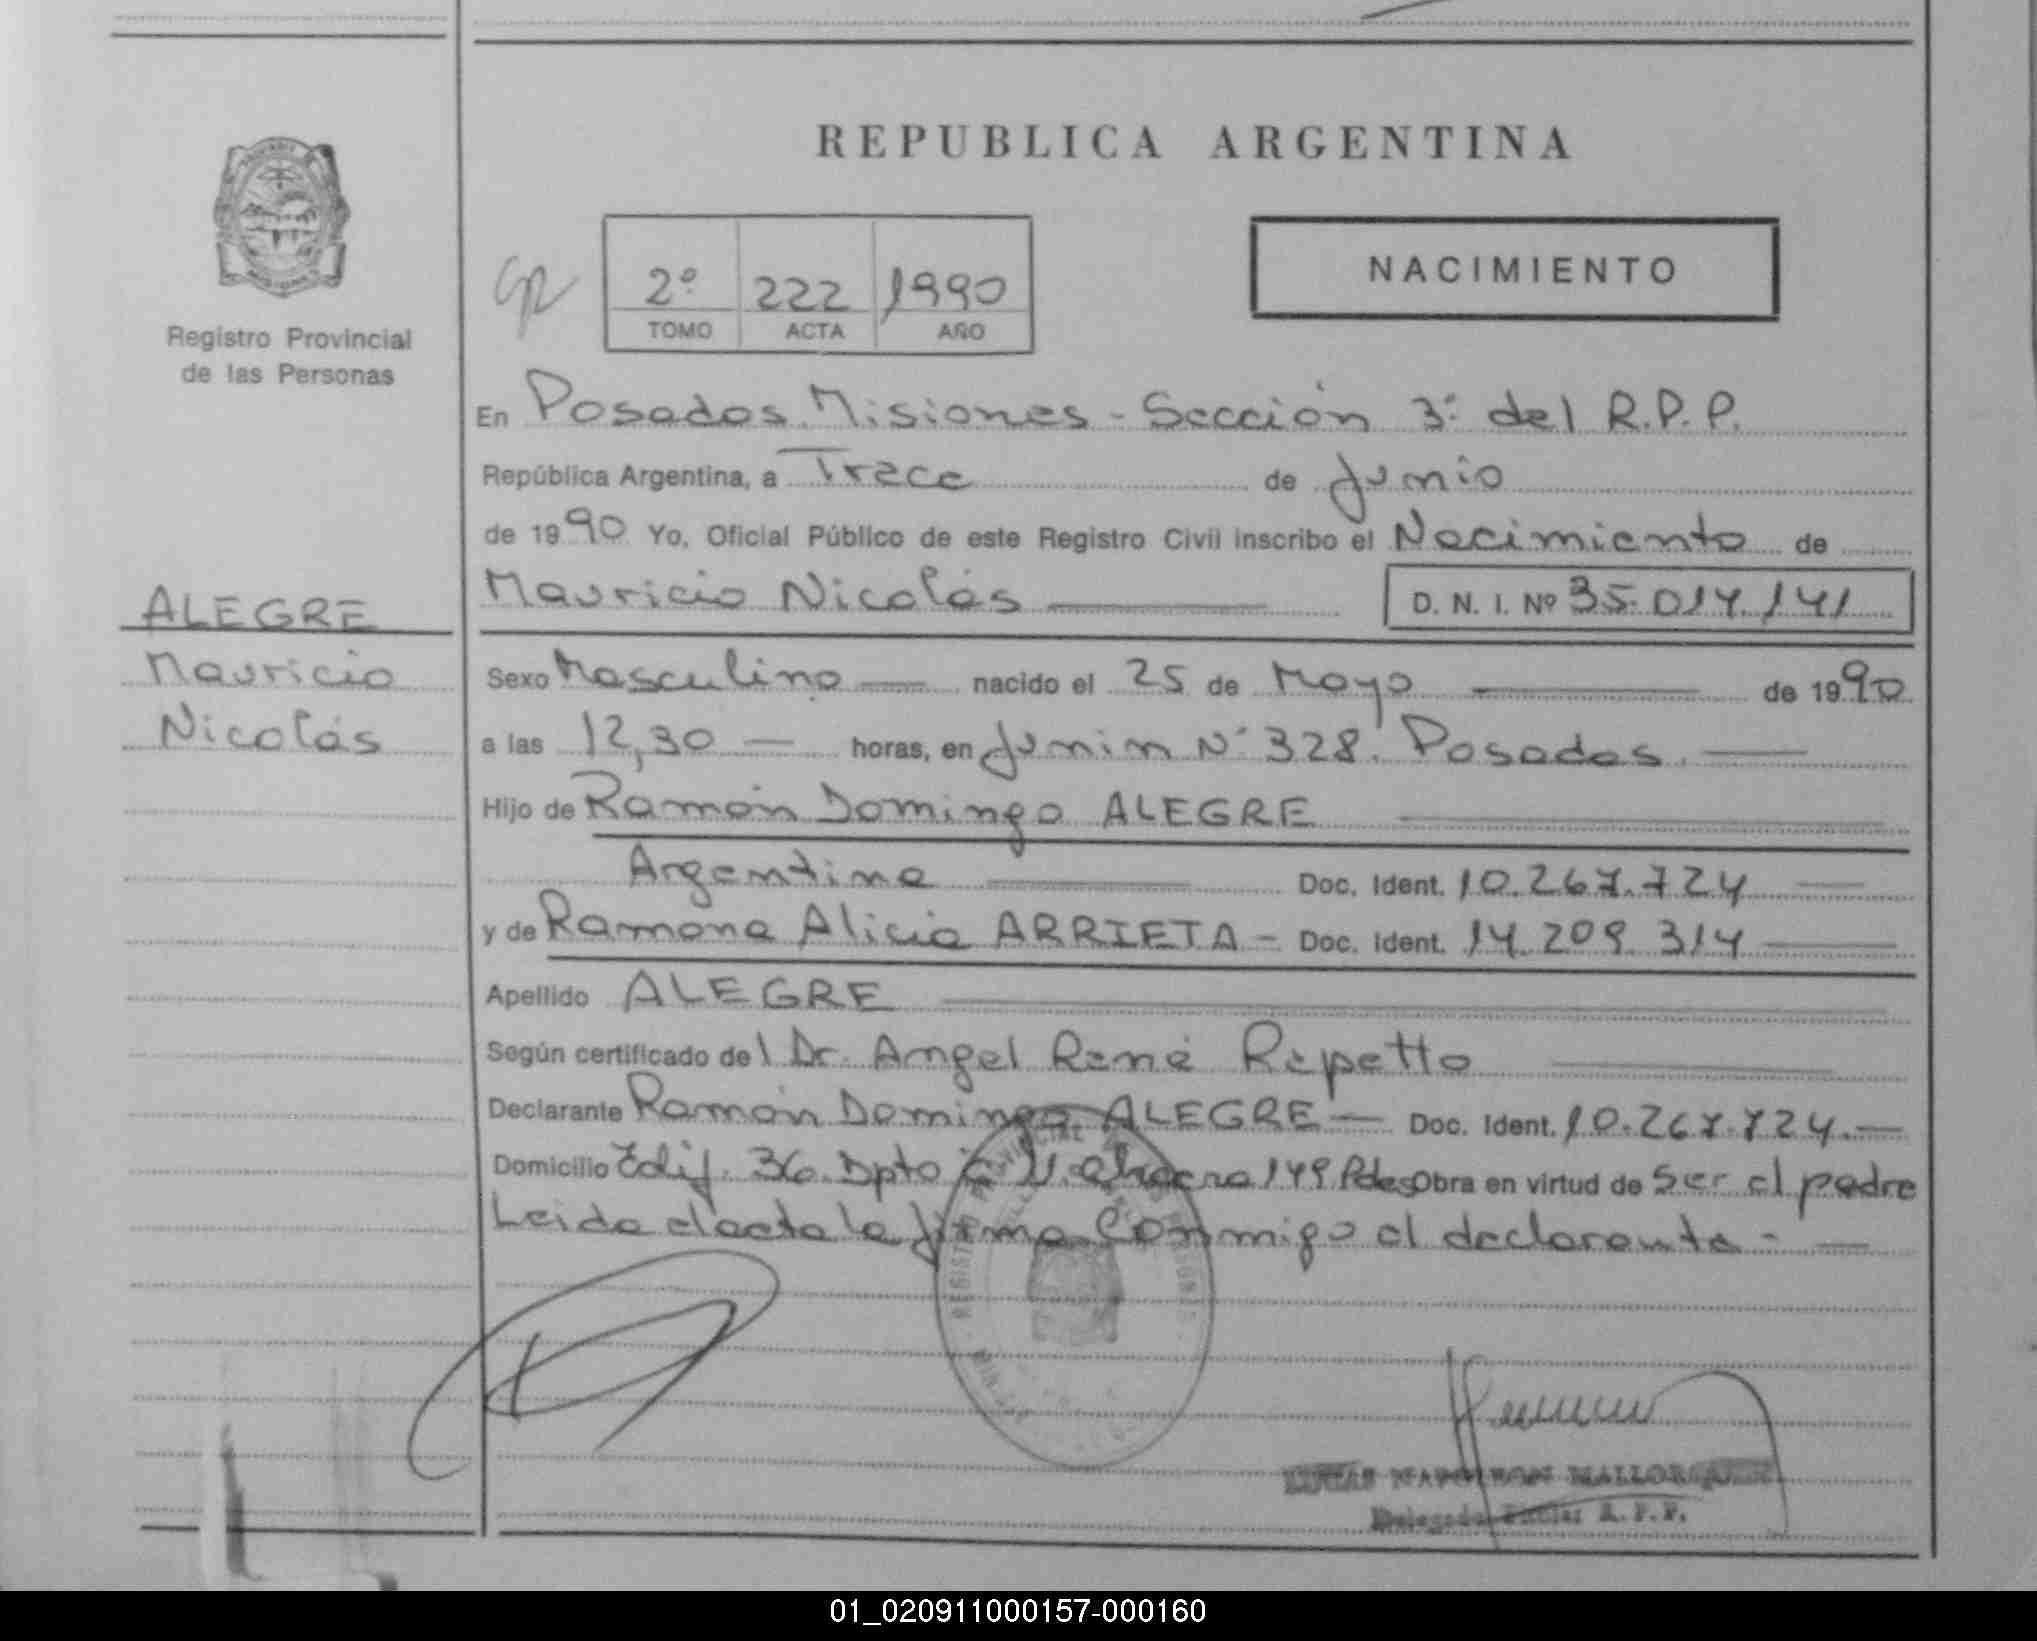 REPUBLICA ARGENTINA
Registro Provincial
de las Personas
2º 222 1990
TOMO ACTA AÑO
NACIMIENTO
En Posadas. Misiones - Sección 3ª del R.P.P.
República Argentina, a Trece de Junio
de 1990 Yo, Oficial Público de este Registro Civil inscribo el Nacimiento de
Mauricio Nicolás D. N. I. Nº 35.014.141
ALEGRE
Mauricio
Nicolás
Sexo Masculino nacido el 25 de Mayo de 1990
a las 12,30 horas, en Junin Nº 328. Posadas.
Hijo de Ramón Domingo ALEGRE
Argentina Doc. Ident. 10.267.724
y de Ramona Alicia ARRIETA - Doc. Ident. 14.209.314
Apellido ALEGRE
Según certificado del Dr. Angel René Repetto
Declarante Ramón Domingo ALEGRE Doc. Ident. 10.267.724.
Domicilio Edif. 36. Dpto 149 Pdas Obra en virtud de ser el padre
Leida el acta la firma Conmigo el declarante -
REGISTRO PROVINCIAL
NAPOLEON MALLORQUIN
Delegado Titular R.P.P.
01_020911000157-000160